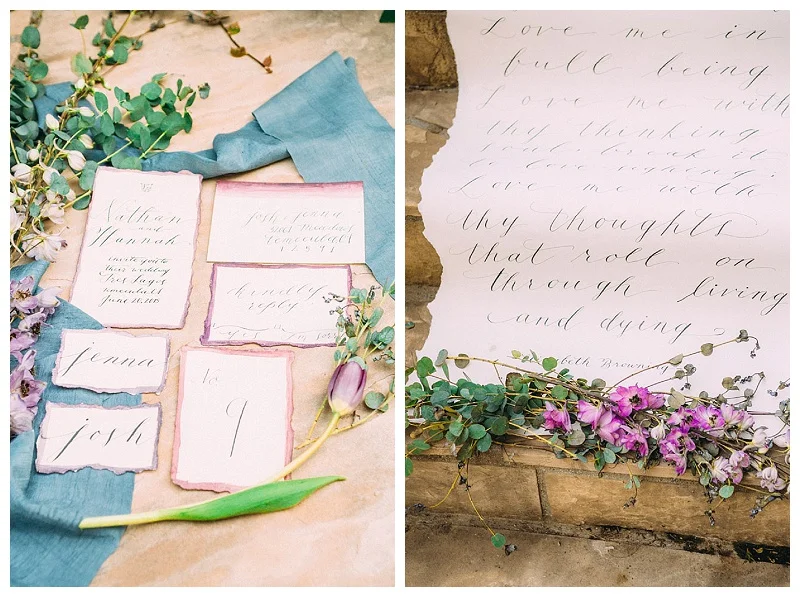 Nathan
and
Hannah
invite you to
their wedding
Tres Lagos
June 20, 2015
josh & jenna
Temecula
kindly
reply
jenna
josh
No.
9
Love me in
full being
Love me with
thy thinking
soul break it
to love
Love me with
thy thoughts
that roll on
through living
and dying
Elizabeth Browning